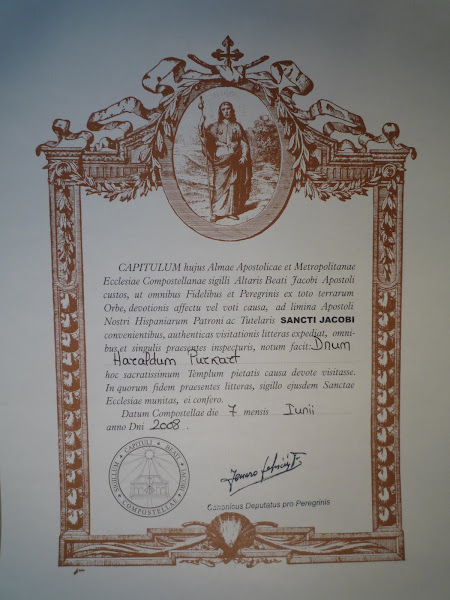 CAPITULUM hujus Almae Apostolicae et Metropolitanae
Ecclesiae Compostellanae sigilli Altaris Beati Jacobi Apostoli
custos, ut omnibus Fidelibus et Peregrinis ex toto terrarum
Orbe, devotionis affectu vel voti causa, ad limina Apostoli
Nostri Hispaniarum Patroni ac Tutelaris SANCTI JACOBI
convenientibus, authenticas visitationis litteras expediat, omni-
bus et singulis praesentes inspecturis, notum facit: Dnum
Haraldum Puckart
hoc sacratissimum Templum pietatis causa devote visitasse.
In quorum fidem praesentes litteras, sigillo ejusdem Sanctae
Ecclesiae munitas, ei confero.
Datum Compostellae die 7 mensis Iunii
anno Dni 2008.
SIGILLUM CAPITULI BEATI JACOBI
COMPOSTELLAE
Canonicus Deputatus pro Peregrinis